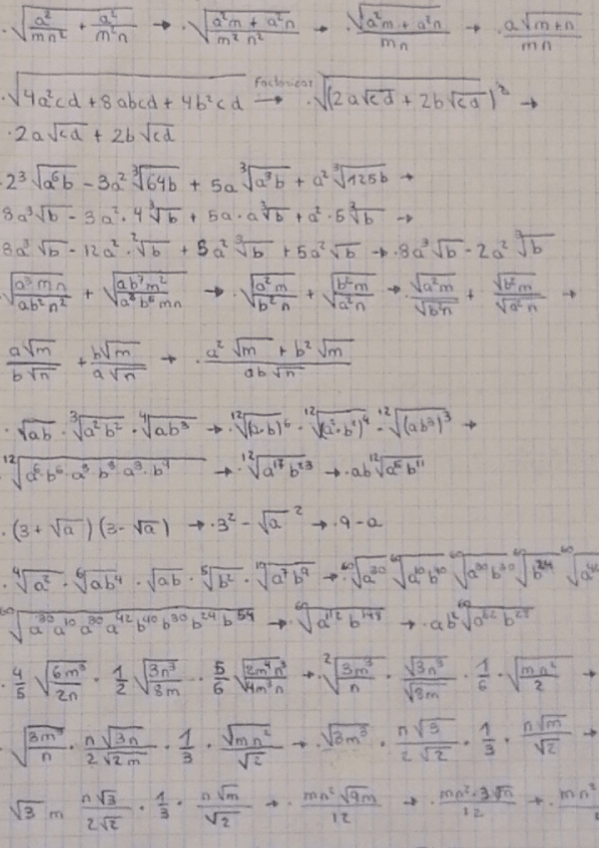 ·√(a²/mn² + a²/m²n) → ·√((a²m + a²n)/m²n²) → ·√(a²m + a²n)/mn → ·a√(m+n)/mn
·√(4a²cd + 8abcd + 4b²cd) factorizar→ ·√(2a√cd + 2b√cd)² →
·2a√cd + 2b√cd
·2³√(a⁶b) - 3a² ³√(64b) + 5a ³√(a³b) + a² ³√(125b) →
8a³√b - 3a²·4 ³√b + 5a·a ³√b + a²·5 ³√b →
8a³√b - 12a²·²√b + 5a² ³√b + 5a²√b → ·8a³√b - 2a² ³√b
·√(a³mn/ab²n²) + √(ab⁷m²/a³b⁵mn) → ·√(a²m/b²n) + √(b²m/a²n) → ·√(a²m)/√(b²n) + √(b²m)/√(a²n) →
a√m/b√n + b√m/a√n → ·(a²√m + b²√m)/ab√n
·√ab · ³√(a²b²) · ⁴√(ab³) → ·¹²√(a·b)⁶ · ¹²√(a²·b²)⁴ · ¹²√(ab³)³ →
¹²√(a⁶·b⁶·a⁸·b⁸·a³·b⁹) → ·¹²√(a¹⁷b²³) → ·ab ¹²√(a⁵b¹¹)
·(3 + √a)(3 - √a) → ·3² - √a² → ·9 - a
·⁴√a² · ⁶√(ab⁴) · √ab · ⁵√b² · ¹⁰√(a⁷b⁹) → ·⁶⁰√a³⁰ ⁶⁰√(a¹⁰b⁴⁰) ⁶⁰√(a³⁰b³⁰) ⁶⁰√b²⁴ ⁶⁰√
⁶⁰√(a³⁰a¹⁰a³⁰a⁴²b⁴⁰b³⁰b²⁴b⁵⁴) → ·⁶⁰√(a¹¹²b¹⁴⁸) → ·ab² ⁶⁰√(a⁵²b²⁸)
·4/5 √(6m³/2n) · 1/2 √(3n³/8m) · 5/6 √(2m⁴n³/4m³n) → ·²√(3m³/n) · √(3n³)/√(8m) · 1/6 · √(mn²/2) →
·√(3m³/n) · n√(3n)/2√(2m) · 1/3 · √(mn²)/√2 → ·√(3m³) · n√3/2√2 · 1/3 · n√m/√2 →
√3 m n√3/2√2 · 1/3 · n√m/√2 → ·mn²√(9m)/12 → ·mn²·3√m/12 → ·mn²